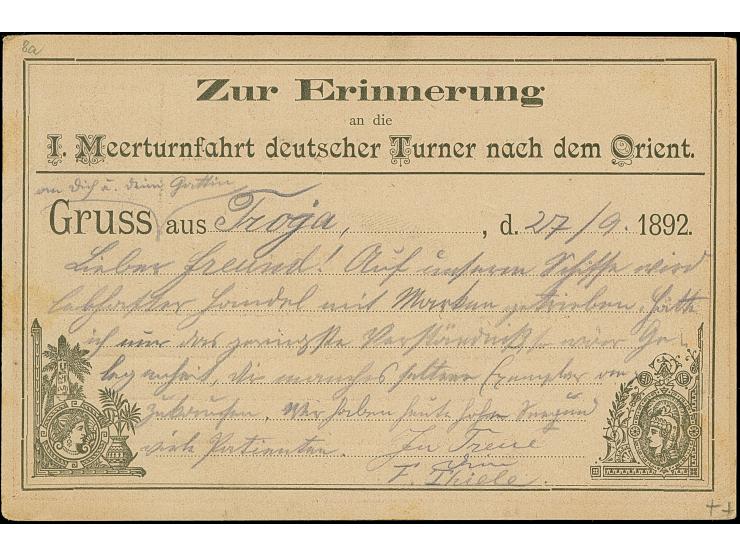 8a
Zur Erinnerung
an die
I. Meerturnfahrt deutscher Turner nach dem Orient.
an Dich u. Deine Gattin
Gruss aus Troja, , d. 27/9. 1892.
Lieber Freund! Auf unserem Schiffe wird
lebhafter Handel mit Marken getrieben. Hätte
ich nur das geringste Verständniß so wäre Ge-
legenheit, Dir manches seltene Exemplar an
zukaufen. Wir haben heute hohe See und
viele Patienten. In Treue
Dein
F. Thiele.
++